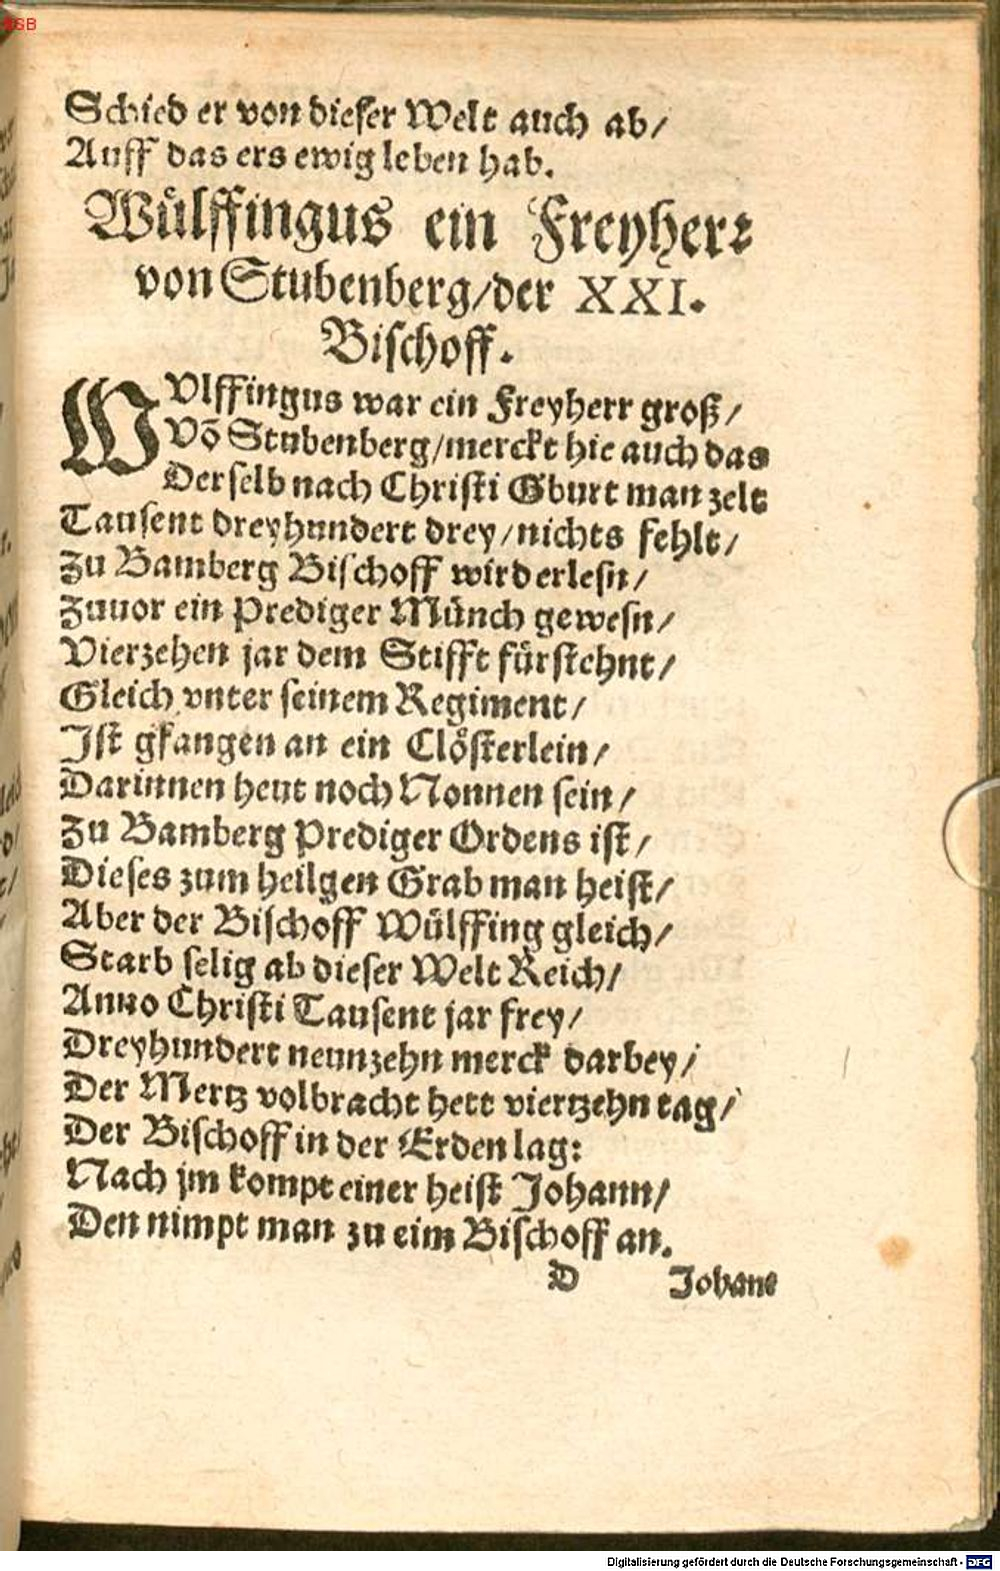 Schied er von dieser Welt auch ab/
Auff das ers ewig leben hab.
Wülffingus ein Freyherr
von Stubenberg/der XXI.
Bischoff.
WVlffingus war ein Freyherr groß/
Võ Stubenberg/merckt hie auch das
Derselb nach Christi Gburt man zelt
Tausent dreyhundert drey/nichts fehlt/
Zu Bamberg Bischoff wird erlesn/
Zuuor ein Prediger Münch gewesn/
Vierzehen jar dem Stifft fürstehnt/
Gleich vnter seinem Regiment/
Ist gfangen an ein Clösterlein/
Darinnen heut noch Nonnen sein/
Zu Bamberg Prediger Ordens ist/
Dieses zum heilgen Grab man heist/
Aber der Bischoff Wülffing gleich/
Starb selig ab dieser Welt Reich/
Anno Christi Tausent jar frey/
Dreyhundert neunzehn merck darbey/
Der Mertz volbracht hett viertzehn tag/
Der Bischoff in der Erden lag:
Nach jm kompt einer heist Johann/
Den nimpt man zu eim Bischoff an.
D Johane
BSB
Digitalisierung gefördert durch die Deutsche Forschungsgemeinschaft - DFG